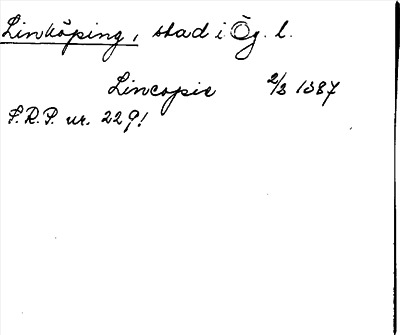 Linköping, stad i Ög. l.
Lincopie 2/3 1387
S.R.P. nr. 229!